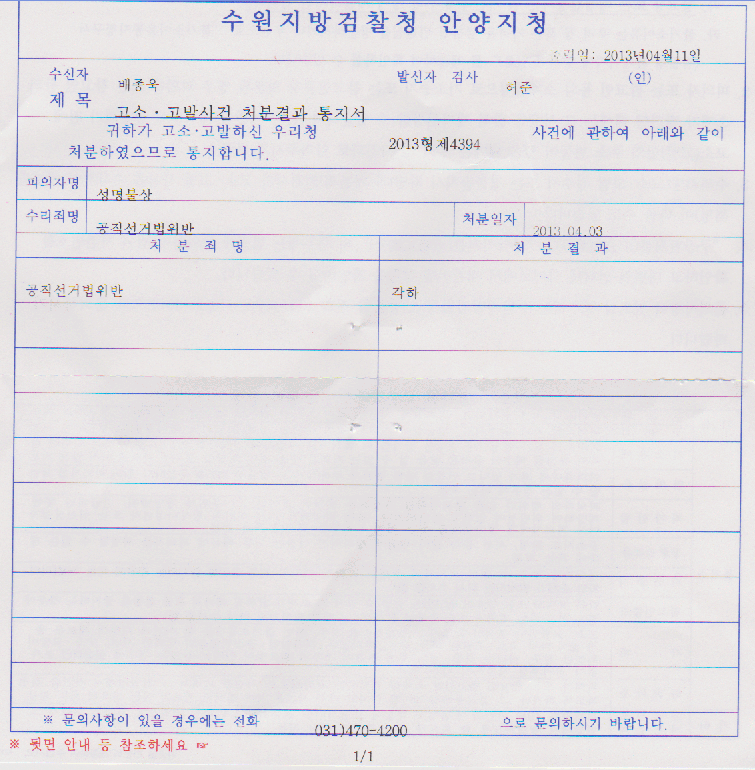 수원지방검찰청 안양지청
일: 2013년04월11일
수신자 배종욱 발신자 검사 허준 (인)
제 목 고소·고발사건 처분결과 통지서
귀하가 고소·고발하신 우리청 2013형제4394 사건에 관하여 아래와 같이
처분하였으므로 통지합니다.
피의자명 성명불상
수리죄명 공직선거법위반 처분일자 2013.04.03
처 분 죄 명 처 분 결 과
공직선거법위반 각하
※ 문의사항이 있을 경우에는 전화 031)470-4200 으로 문의하시기 바랍니다.
※ 뒷면 안내 등 참조하세요 ☞
1/1